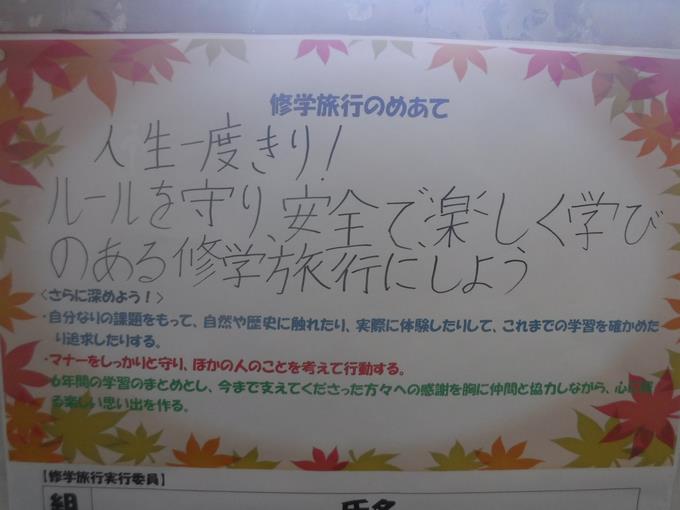 修学旅行のめあて
人生一度きり!
ルールを守り、安全で、楽しく学び
のある修学旅行にしよう
<さらに深めよう!>
・自分なりの課題をもって、自然や歴史に触れたり、実際に体験したりして、これまでの学習を確かめた
り追求したりする。
・マナーをしっかりと守り、ほかの人のことを考えて行動する。
・6年間の学習のまとめとし、今まで支えてくださった方々への感謝を胸に仲間と協力しながら、心に残
る楽しい思い出を作る。
【修学旅行実行委員】
組 氏名